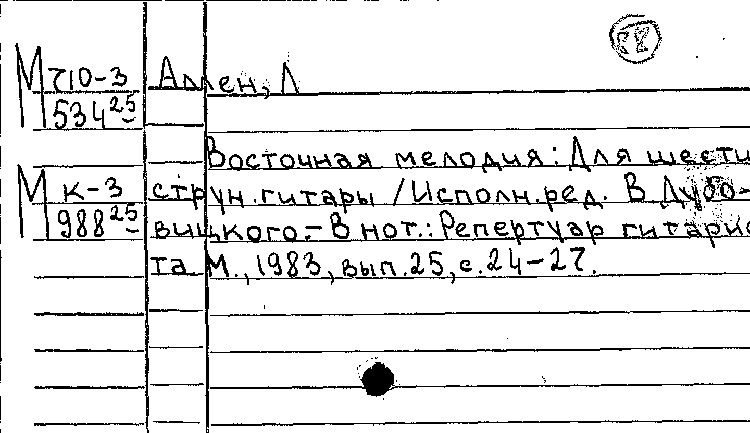 88
М 710-3 Аллен, Л
534 25
Восточная мелодия: Для шести
М К-3 струн.гитары /Исполн.ред. В Дубо-
988 25 вицкого.- В нот.: Репертуар гитарис
та М., 1983, вып.25, с.24-27.